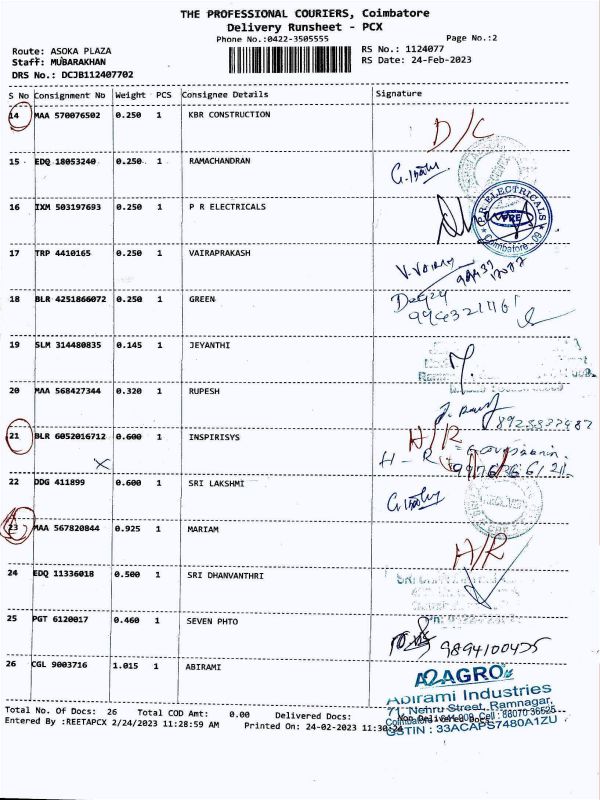 THE PROFESSIONAL COURIERS, Coimbatore
Delivery Runsheet - PCX
Phone No.:0422-3505555
Page No.:2
Route: ASOKA PLAZA
RS No.: 1124077
Staff: MUBARAKHAN
RS Date: 24-Feb-2023
DRS No.: DCJB112407702
S No Consignment No Weight PCS Consignee Details Signature
14 MAA 570076502 0.250 1 KBR CONSTRUCTION D/C
15 EDQ 18053240 0.250 1 RAMACHANDRAN
16 IXM 503197693 0.250 1 P R ELECTRICALS
P.R. ELECTRICALS
PRE
Coimbatore - 09
17 TRP 4410165 0.250 1 VAIRAPRAKASH
18 BLR 4251866072 0.250 1 GREEN
19 SLM 314480835 0.145 1 JEYANTHI
20 MAA 568427344 0.320 1 RUPESH
21 BLR 6052016712 0.600 1 INSPIRISYS H/R
H - R
22 DDG 411899 0.600 1 SRI LAKSHMI
23 MAA 567820844 0.925 1 MARIAM H/R
24 EDQ 11336018 0.500 1 SRI DHANVANTHRI
25 PGT 6120017 0.460 1 SEVEN PHTO
26 CGL 9003716 1.015 1 ABIRAMI
A2AGRO
Abirami Industries
71, Nehru Street, Ramnagar,
GSTIN : 33ACAPS7480A1ZU
Total No. Of Docs: 26 Total COD Amt: 0.00 Delivered Docs: Non Delivered Docs:
Entered By :REETAPCX 2/24/2023 11:28:59 AM Printed On: 24-02-2023